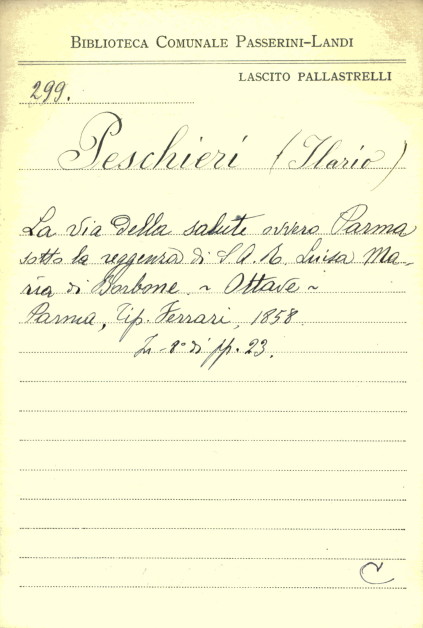 BIBLIOTECA COMUNALE PASSERINI-LANDI
LASCITO PALLASTRELLI
299.
Peschieri (Ilario)
La via della salute ovvero Parma
sotto la reggenza di S. A. R. Luisa Ma-
ria di Borbone ~ Ottave ~
Parma, Tip. Ferrari, 1858.
In-8° di pp. 23.
C